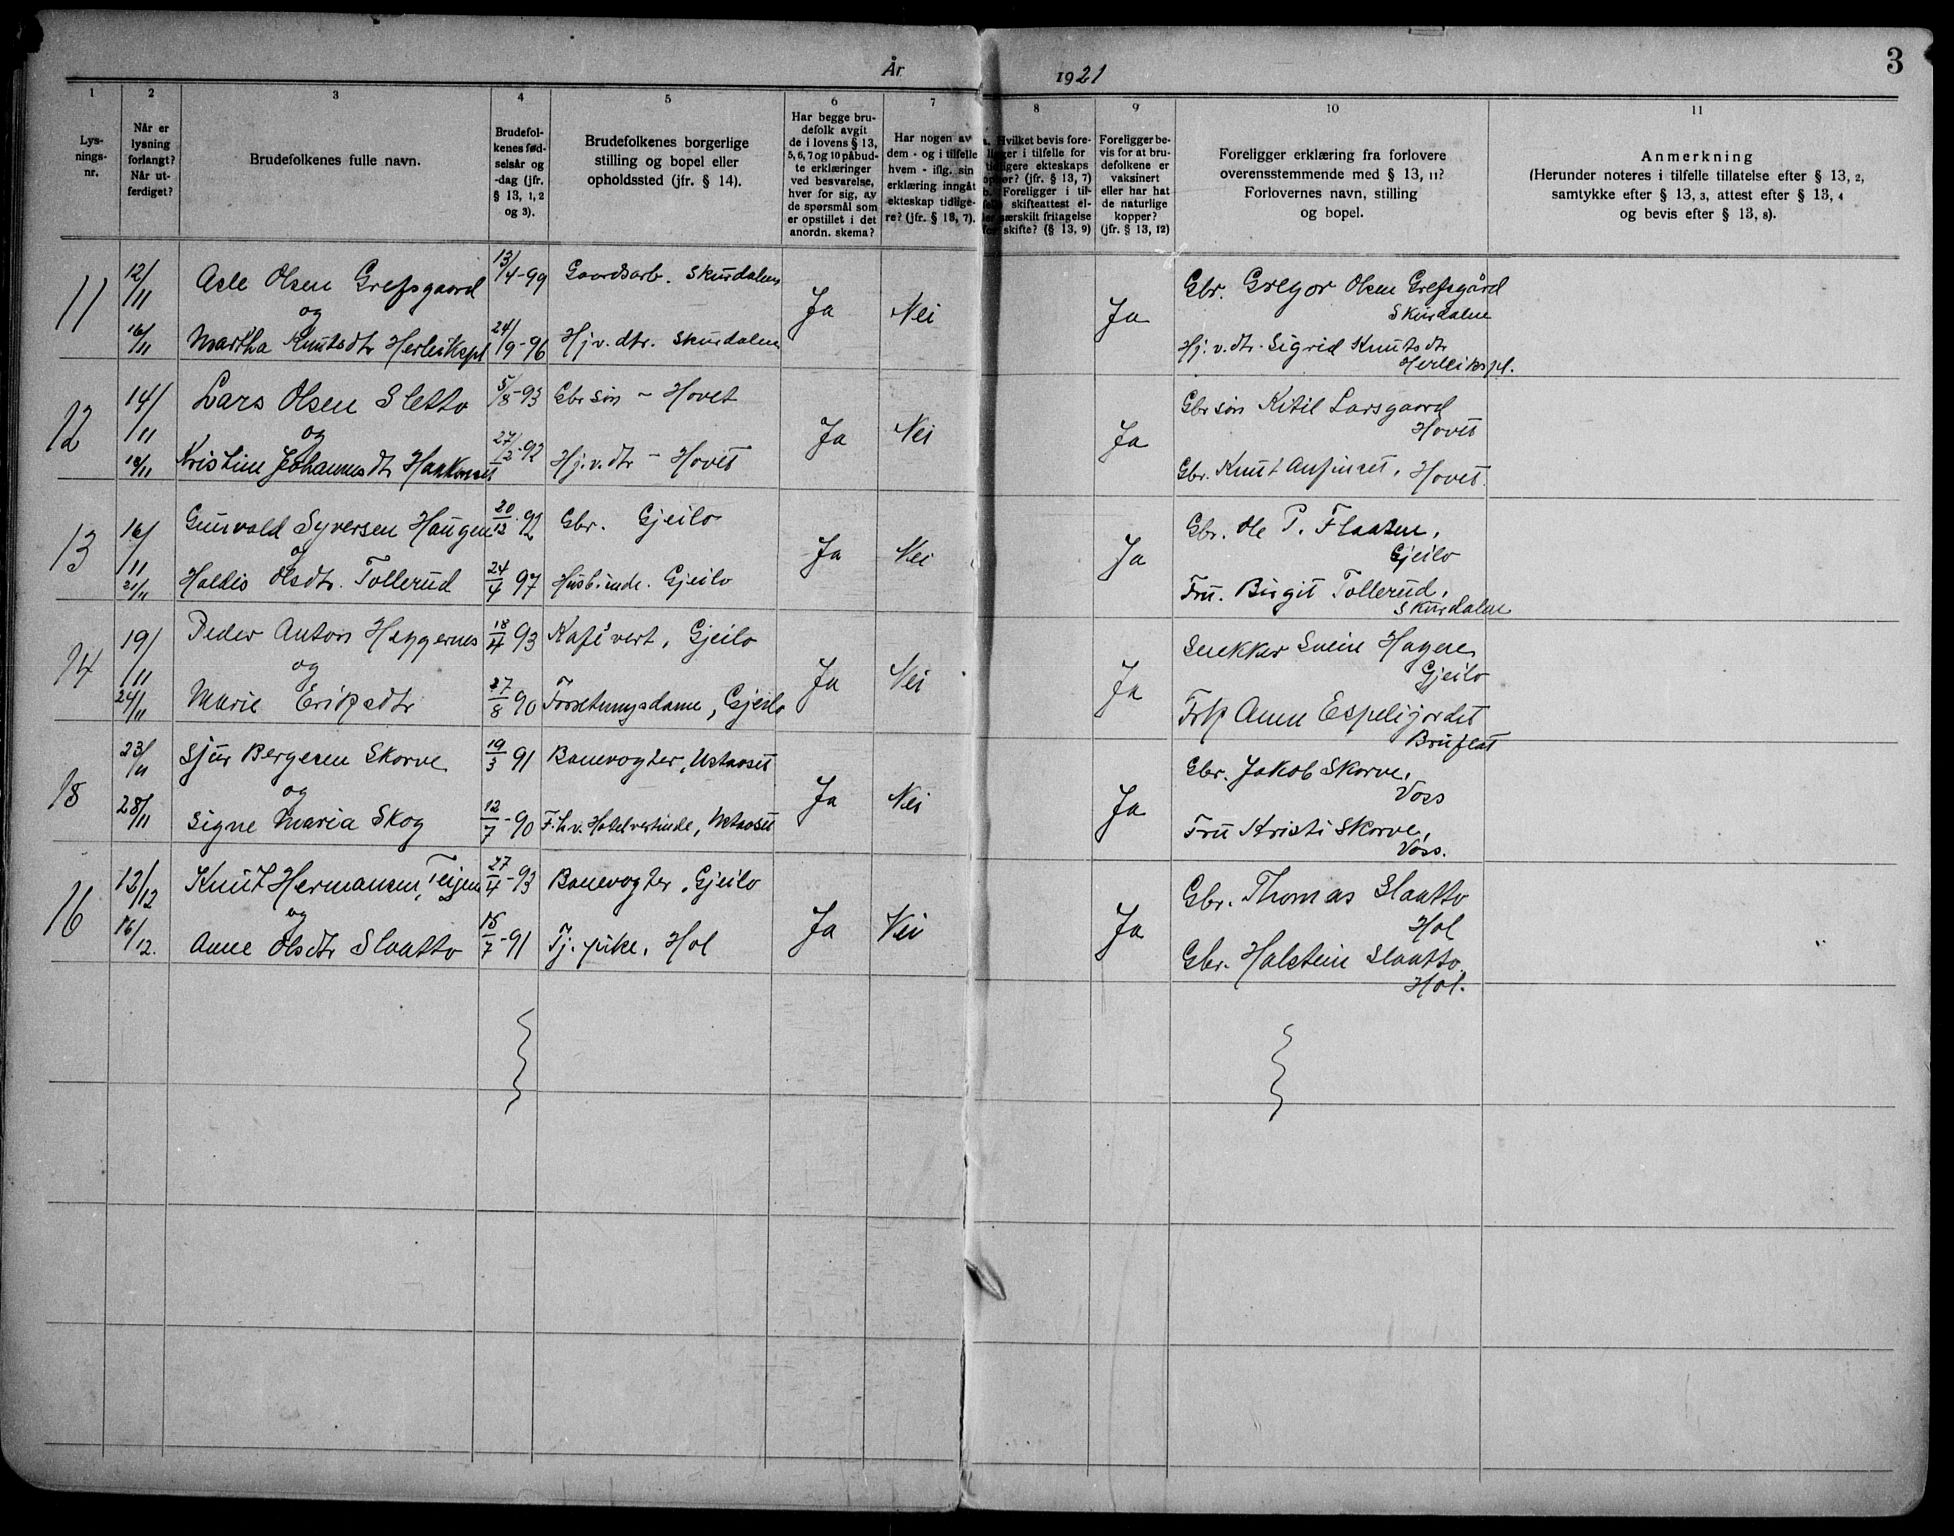 År 1921
3
1 2 3 4 5 6 7 8 9 10 11
Lys-
nings-
nr.
Når er
lysning
forlangt?
Når ut-
ferdiget?
Brudefolkenes fulle navn.
Brudefol-
kenes fød-
selsår og
-dag (jfr.
§ 13, 1, 2
og 3).
Brudefolkenes borgerlige
stilling og bopel eller
opholdssted (jfr. § 14).
Har begge bru-
defolk avgit
de i lovens § 13,
5, 6, 7 og 10 påbud-
te erklæringer
ved besvarelse,
hver for sig, av
de spørsmål som
er opstillet i det
anordn. skema?
Har nogen av
dem - og i tilfelle
hvem - iflg. sin
erklæring inngåt
ekteskap tidlige-
re? (jfr. § 13, 7).
Hvilket bevis fore-
ligger i tilfelle for
tidligere ekteskaps
(jfr. § 13, 7)
Foreligger i til-
skifteattest el-
særskilt fritagelse
skifte? (§ 13, 9)
Foreligger be-
vis for at bru-
defolkene er
vaksinert
eller har hat
de naturlige
kopper?
(jfr. § 13, 12)
Foreligger erklæring fra forlovere
overensstemmende med § 13, 11?
Forlovernes navn, stilling
og bopel.
Anmerkning
(Herunder noteres i tilfelle tillatelse efter § 13, 2,
samtykke efter § 13, 3, attest efter § 13, 4
og bevis efter § 13, 8).
11 12/11 Asle Olsen Grefsgaard 13/4-99 Gaardsarb. Skurdalen Ja Nei Ja Gbr. Gregor Olsen Grefsgård
og Skurdalen
16/11 Martha Knutsdtr Herleikspl 24/9-96 Hj.v.dtr. Skurdalen Hj.v.dtr. Sigrid Knutsdtr
Herleikspl.
12 14/11 Lars Olsen Sletto 5/8-93 Gbrsön - Hovet Ja Nei Ja Gbrsön Kitil Larsgaard
og Hovet
18/11 Kristine Johannesdtr 27/2-92 Hj.v.dtr - Hovet Gbr. Knut Anfinset, Hovet.
13 16/11 Gunvald Syversen Haugen 20/12-92 Gbr. Gjeilo Ja Nei Ja Gbr. Ole P. Flaaten,
og Gjeilo
21/11 Haldis Olsdtr. Tollerud 24/4 97 Gjeilo Fru. Birgit Tollerud,
Skurdalen
14 19/11 Peder Anton Heggernes 18/4 93 Kafévert, Gjeilo Ja Nei Ja Snekker Svein Hagen
og Gjeilo
24/11 Marie Eriksdtr 27/8 90 Forretningsdame, Gjeilo Frk Anne Espelijordet
Bruflat
18 23/11 Sjur Bergesen Skorve 19/3 91 Banevogter, Ustaoset Ja Nei Ja Gbr. Jakob Skorve,
og Voss
28/11 Signe Maria Skog 12/7-90 F.h.v. Hotelvertinde, Ustaoset Fru Kristi Skorve,
Voss.
16 12/12 Knut Hermansen Teigen 27/4-93 Banevogter, Gjeilo Ja Nei Ja Gbr. Thomas Slaatto
og Hol
16/12. Anne Olsdtr Slaatto 18/7-91 Tj. pike, Hol Gbr. Halstein Slaatto
Hol.